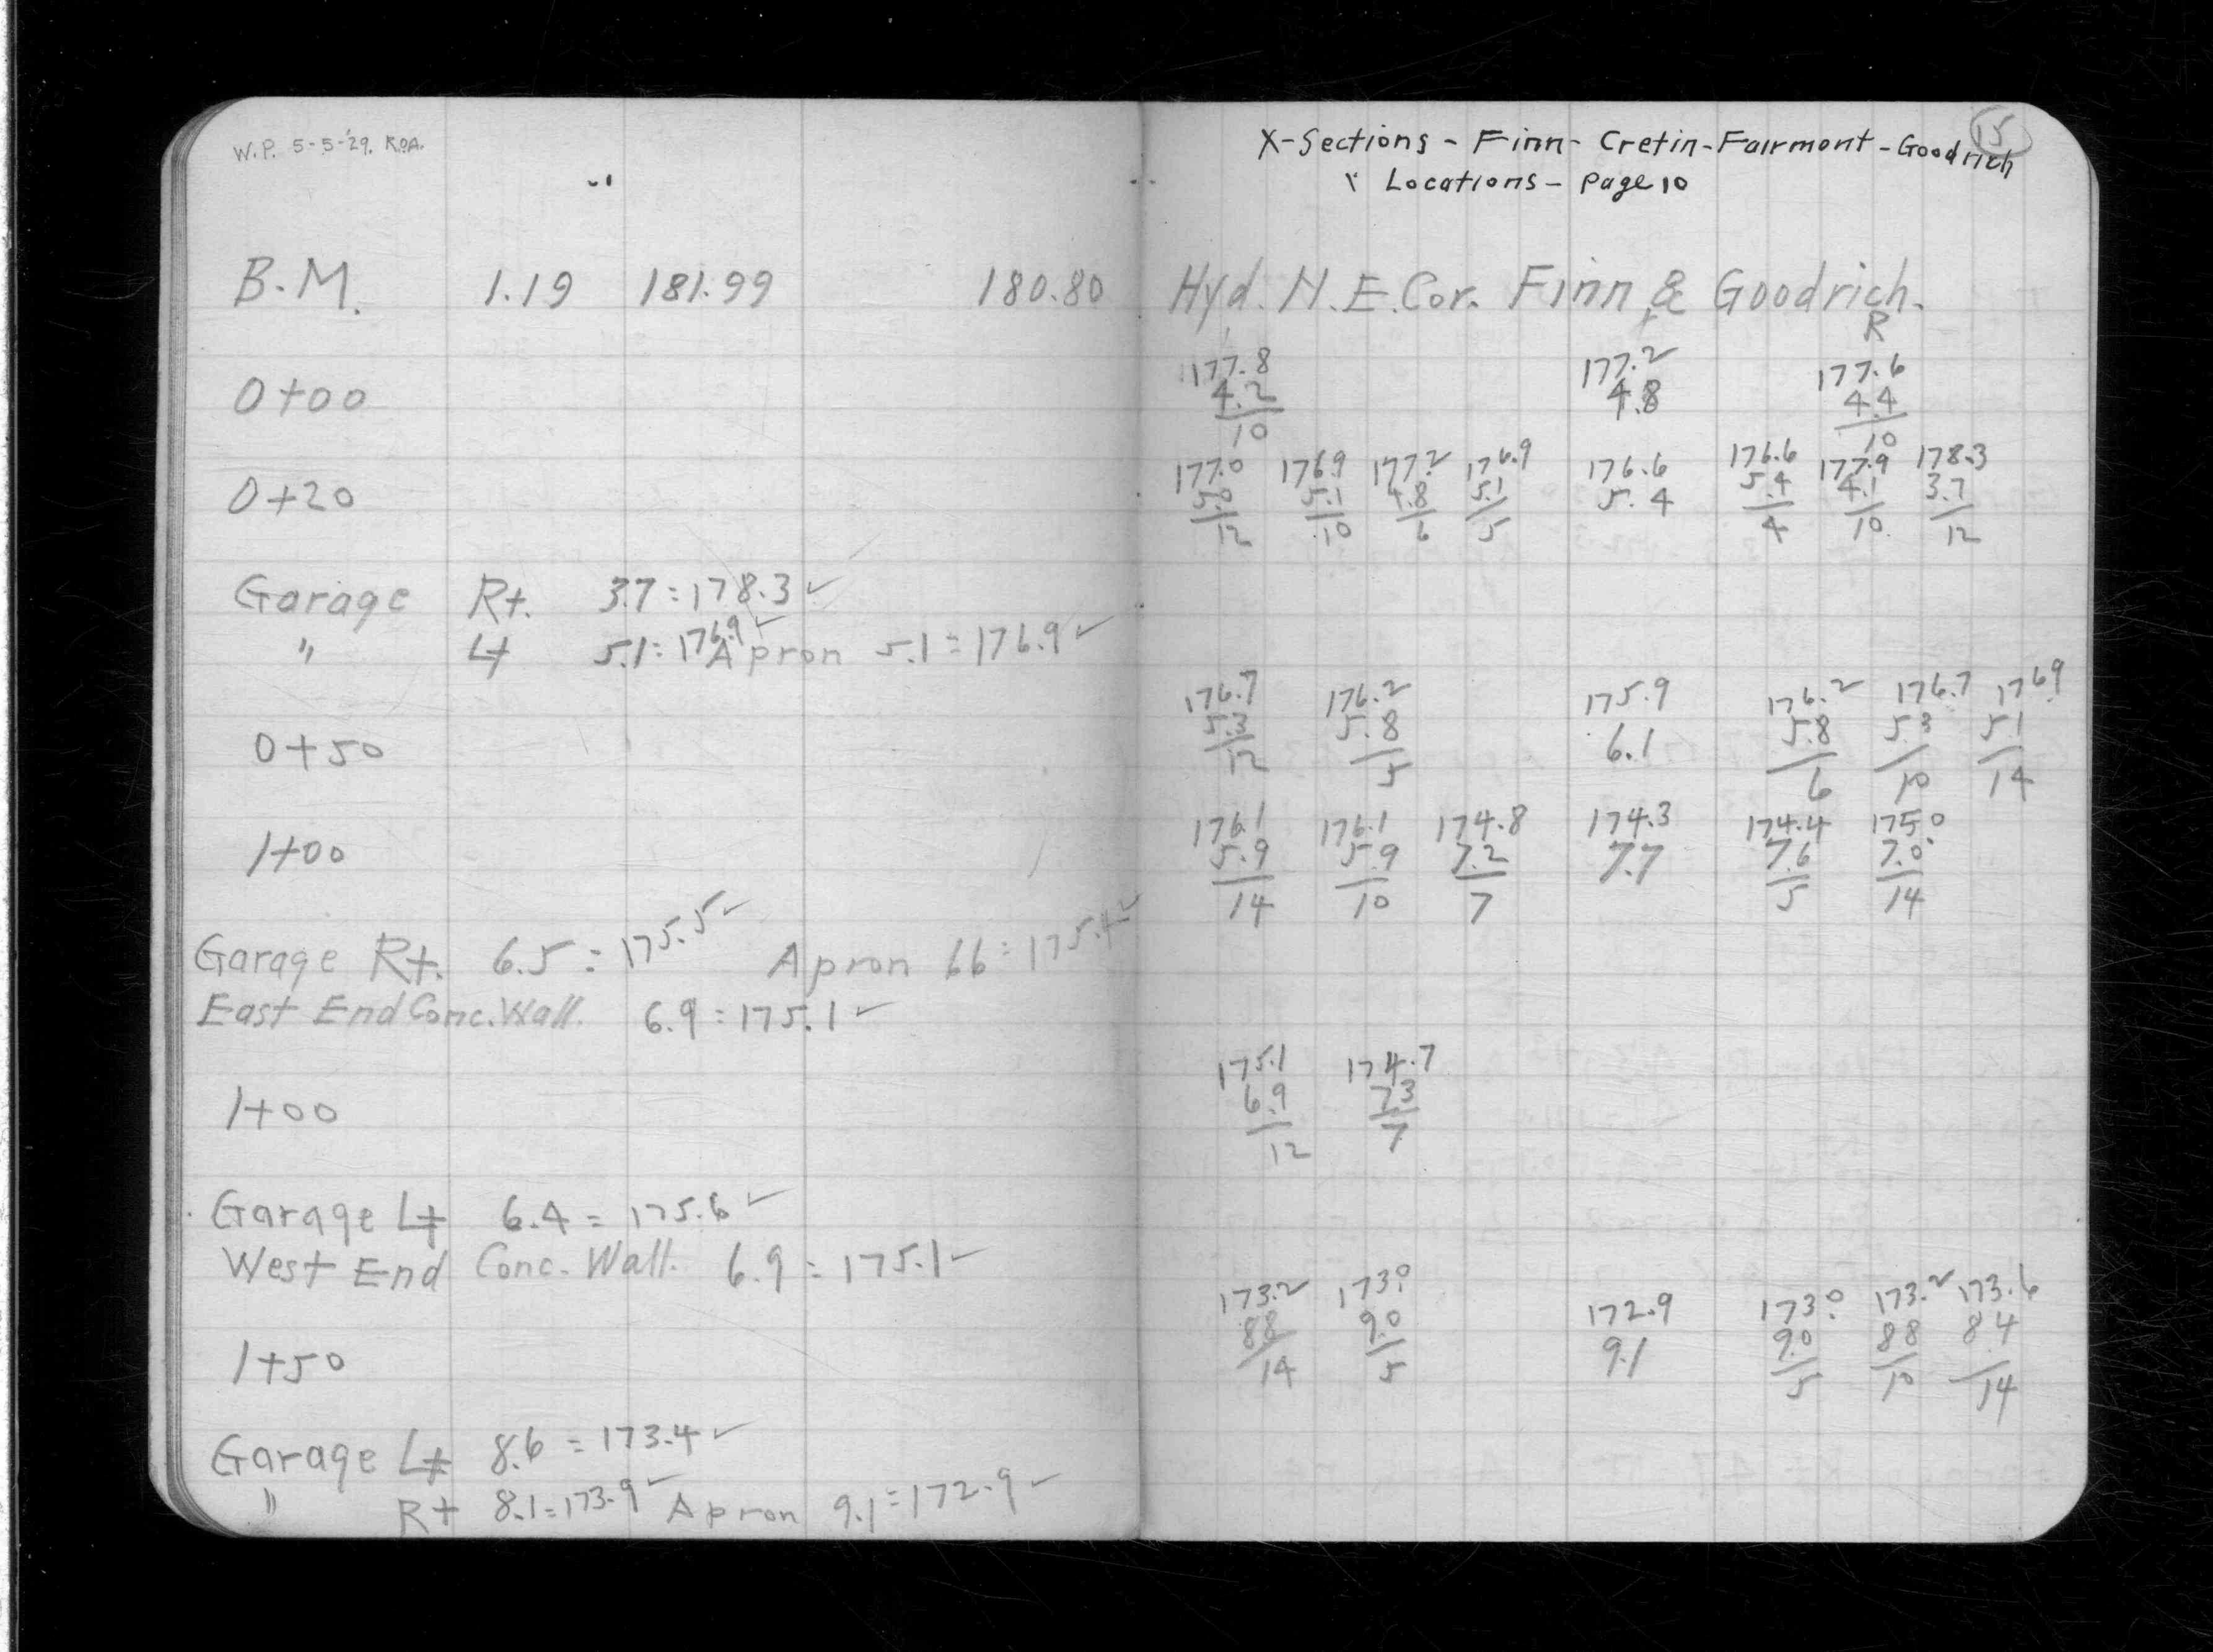 W.P. 5-5-'29. R.O.A.
15
X-Sections - Finn - Cretin - Fairmont - Goodrich
" Locations - Page 10
B.M. 1.19 181.99 180.80 Hyd. N.E. Cor. Finn & Goodrich.
R
177.8 177.2 177.6
0+00 4.2 4.8 4.4
10 10
177.0 176.9 177.2 176.9 176.6 176.6 177.9 178.3
0+20 5.0 5.1 4.8 5.1 5.4 5.4 4.1 3.7
12 10 6 5 4 10 12
Garage Rt. 3.7 = 178.3 ✓
" Lt 5.1 = 176.9 ✓ Apron 5.1 = 176.9 ✓
176.7 176.2 175.9 176.2 176.7 176.9
0+50 5.3 5.8 6.1 5.8 5.3 5.1
12 5 6 10 14
176.1 176.1 174.8 174.3 174.4 175.0
1+00 5.9 5.9 7.2 7.7 7.6 7.0
14 10 7 5 14
Garage Rt. 6.5 = 175.5 ✓ Apron 6.6 = 175.4 ✓
East End Conc. Wall. 6.9 = 175.1 ✓
175.1 174.7
1+00 6.9 7.3
12 7
Garage Lt 6.4 = 175.6 ✓
West End Conc. Wall. 6.9 = 175.1 ✓
173.2 173.0 172.9 173.0 173.2 173.6
1+50 8.8 9.0 9.1 9.0 8.8 8.4
14 5 5 10 14
Garage Lt 8.6 = 173.4 ✓
" Rt 8.1 = 173.9 ✓ Apron 9.1 = 172.9 ✓